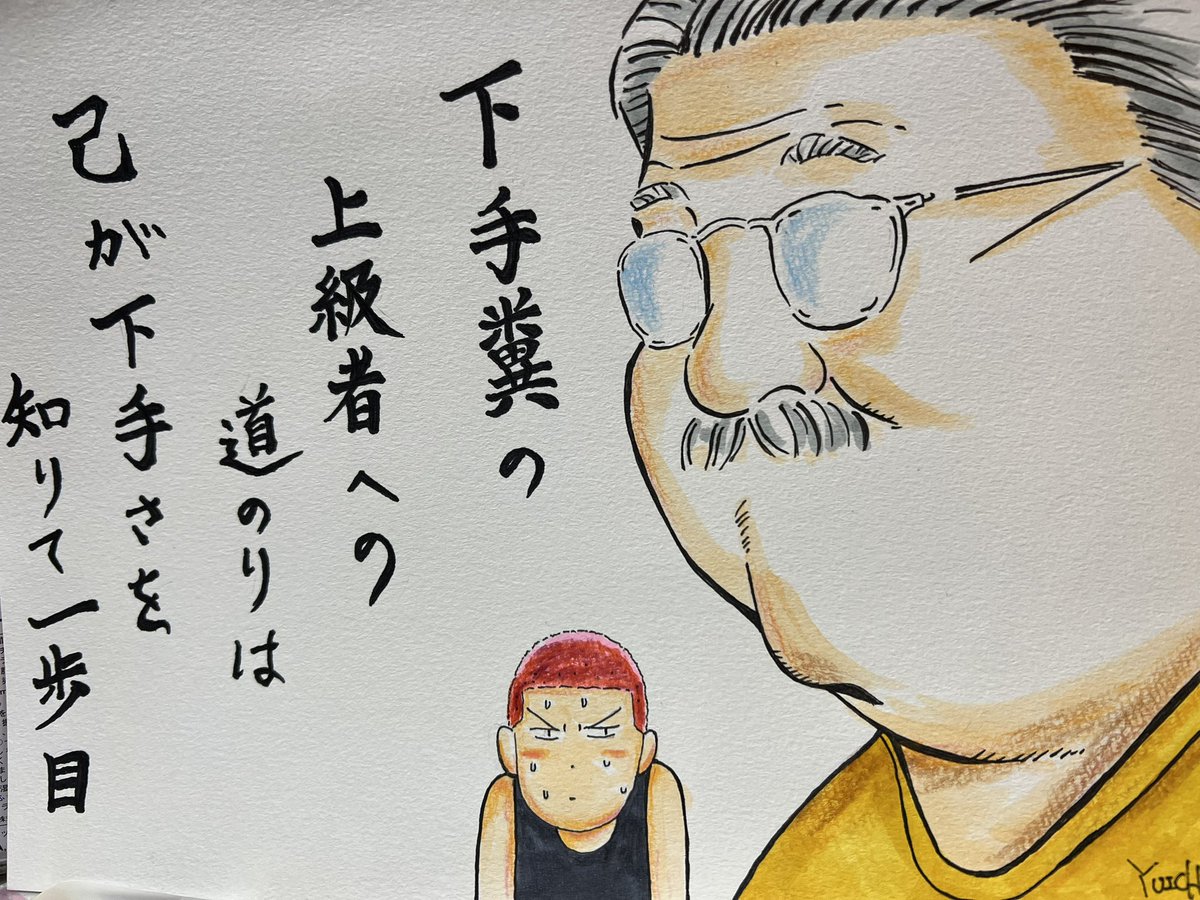 下手糞の
上級者への
道のりは
己が下手さを
知りて一歩目